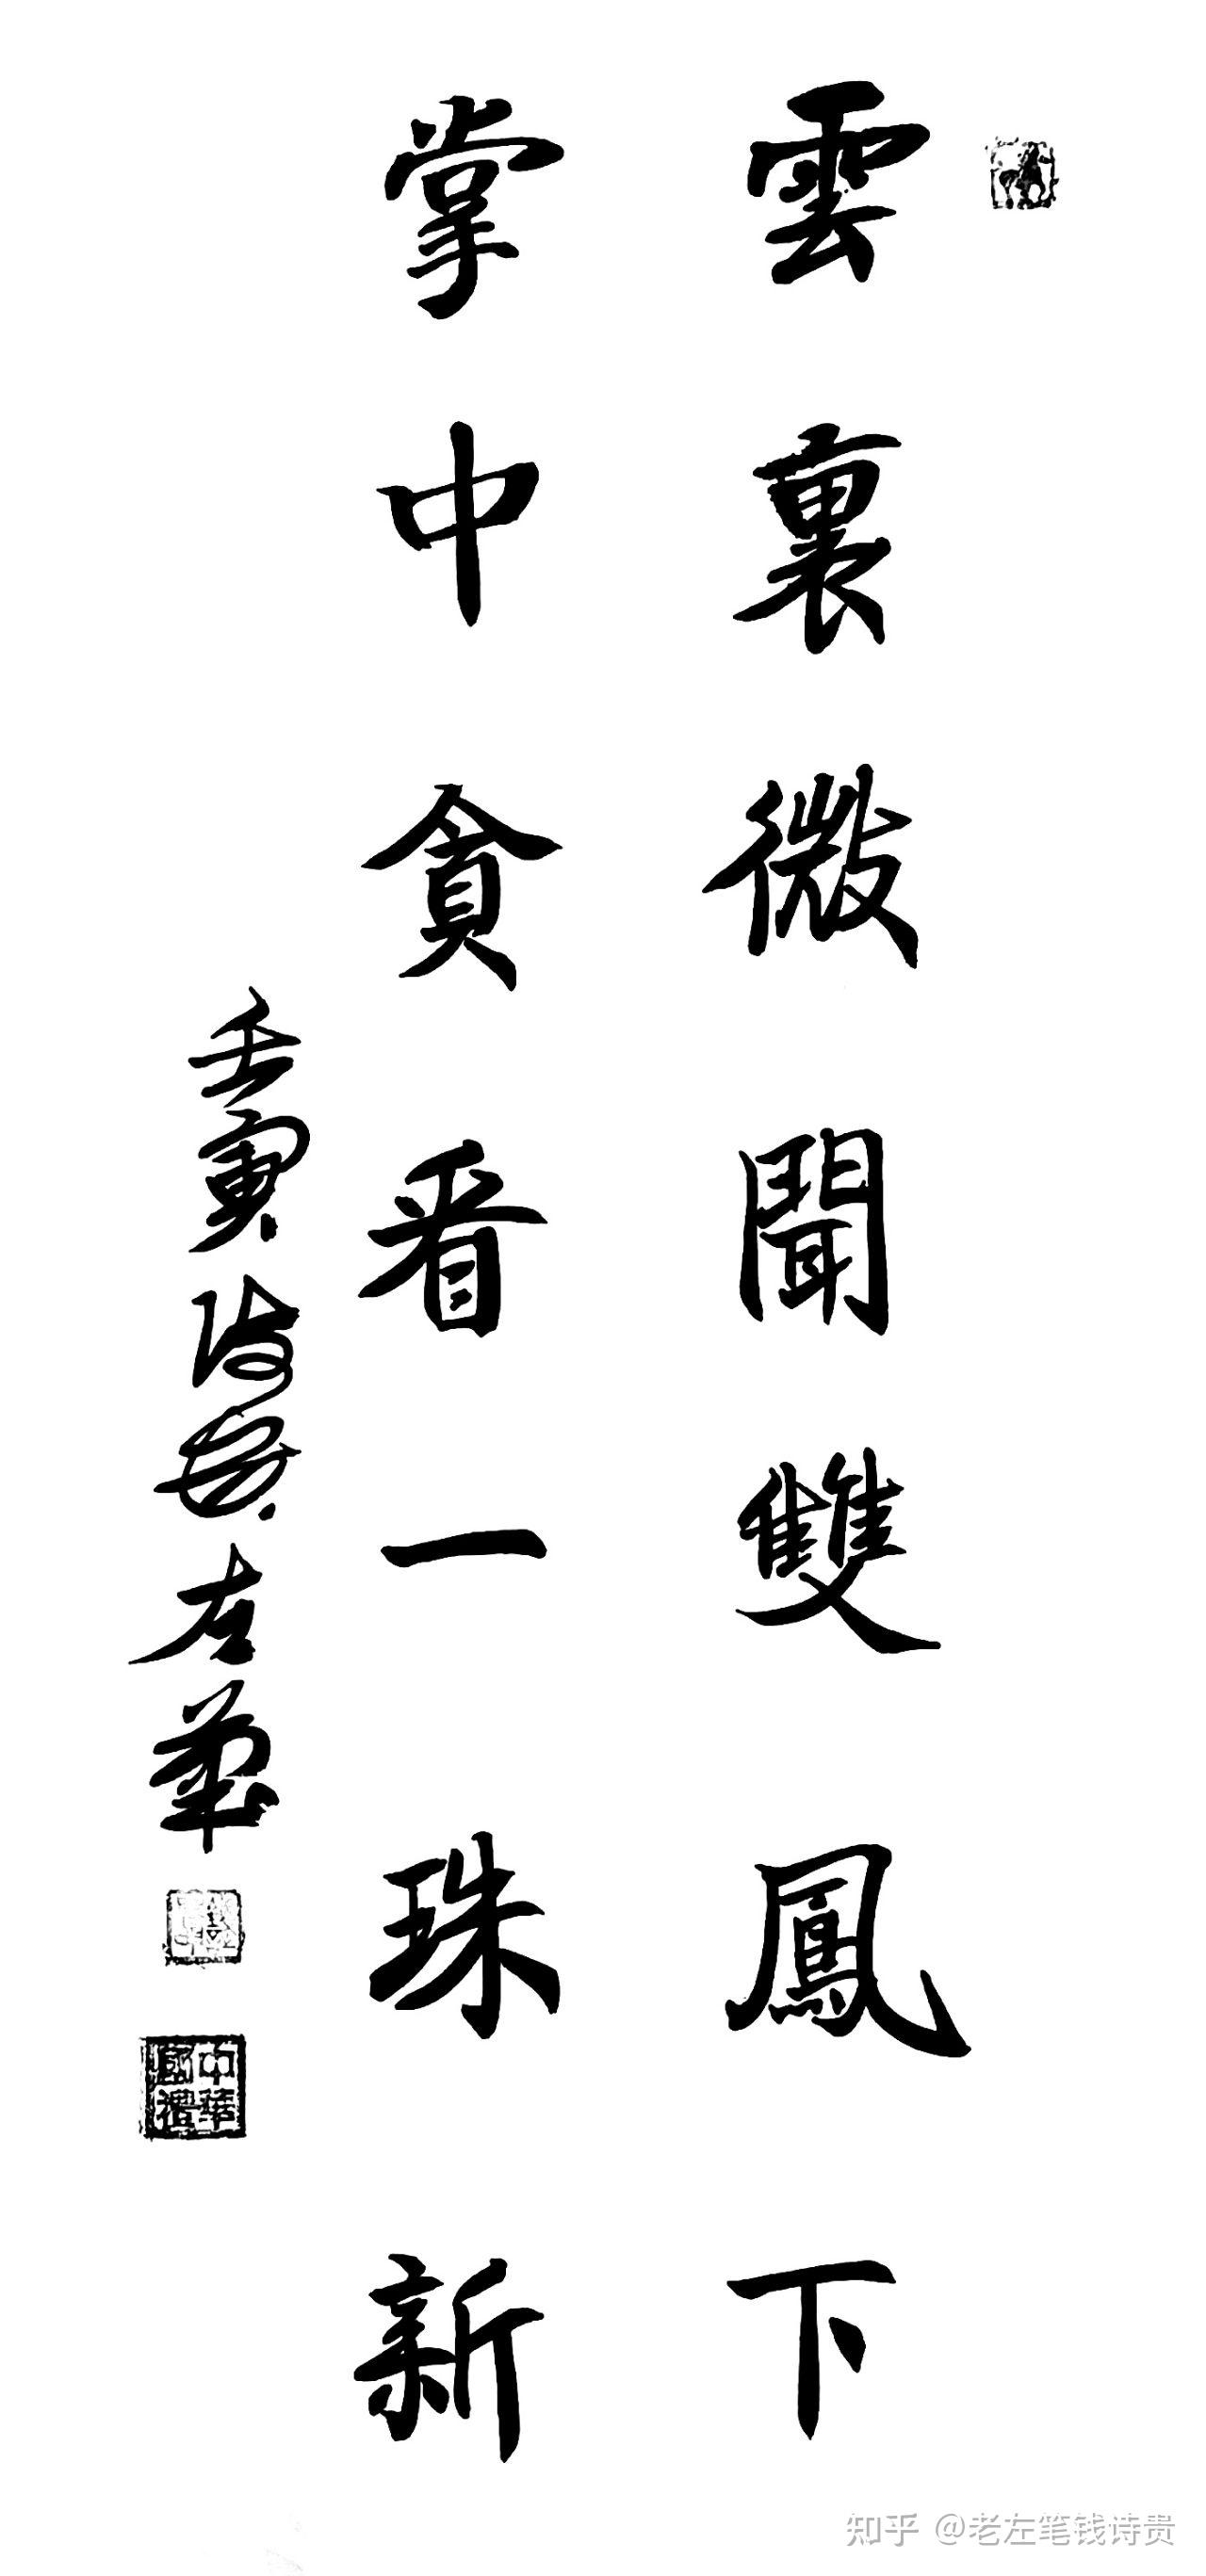 雲裏微聞雙鳳下
掌中貪看一珠新
壬寅
左筆
中華
知乎 @老左笔钱诗贵